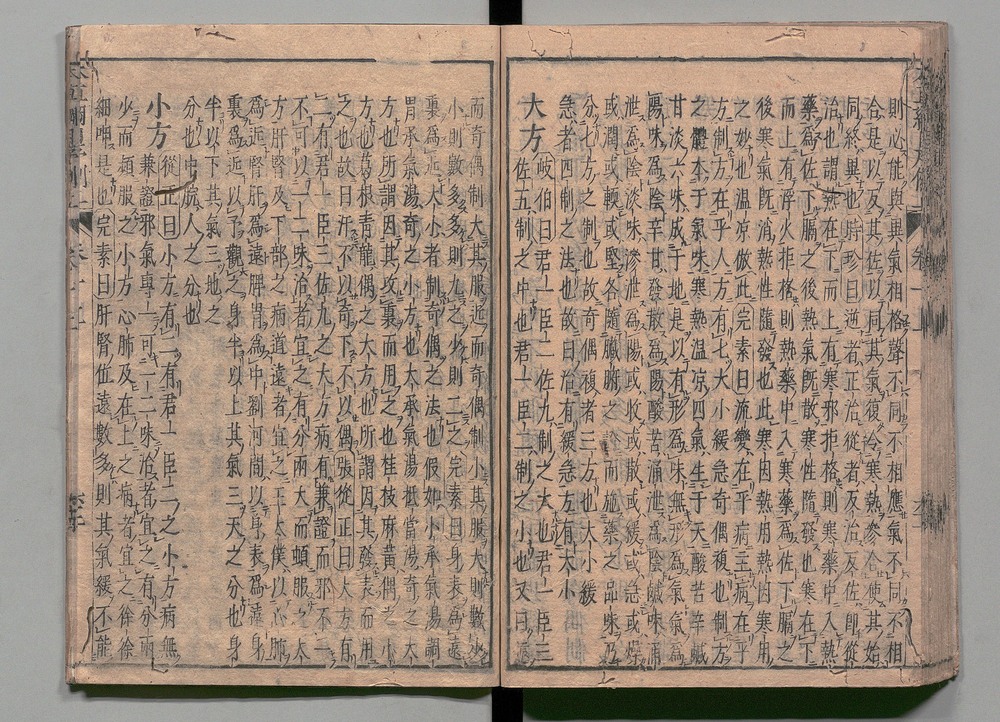 則必能與異氣相格聲不同不相應氣不同不相
合是以又反其佐以同其氣復令寒熱參合使其始
同終異也時珍曰逆者正治從者反治反佐即從
治也謂熱在下而上有寒邪拒格則寒藥中入熱
藥為佐下膈之後熱氣既散寒性隨發也寒在下
而上有浮火拒格則熱藥中入寒藥為佐下膈之
後寒氣既消熱性隨發也此寒因熱用熱因寒用
之妙也溫凉倣此完素曰流變在乎病主病在乎
方制方在乎人方有七大小緩急奇偶複也制方
之體本于氣味寒熱溫凉四氣生于天酸苦辛鹹
甘淡六味成于地是以有形為味無形為氣氣為
陽味為陰辛甘發散為陽酸苦涌泄為陰鹹味涌
泄為陰淡味滲泄為陽或收或散或緩或急或燥
或潤或軟或堅各隨臟腑之證而施藥之品味乃
分七方之制也故奇偶複者三方也大小緩
急者四制之法也故曰治有緩急方有大小
大方 岐伯曰君一臣二佐九制之大也君一臣三
佐五制之中也君一臣二制之小也又曰遠
而奇偶制大其服近而奇偶制小其服大則數少
小則數多多則九之少則二之完素曰身表為遠
裏為近大小者制奇偶之法也假如小承氣湯調
胃承氣湯奇之小方也大承氣湯抵當湯奇之大
方也所謂因其攻裏而用之也桂枝麻黃偶之小
方也葛根青龍偶之大方也所謂因其發表而用
之也故曰汗不以奇下不以偶張從正曰大方有
二有君一臣三佐九之大方病有兼證而邪不一
不可以一二味治者宜之有分兩大而頓服之大
方肝腎及下部之病道遠者宜之王太僕以心肺
為近腎肝為遠脾胃為中劉河間以身表為遠身
裏為近以予觀之身半以上其氣三天之分也身
半以下其氣三地之
分也中脘人之分也
小方 從正曰小方有二有君一臣二之小方病無
兼證邪氣專一可一二味治者宜之有分兩
少而頻服之小方心肺及在上之病者宜之徐徐
細呷是也完素曰肝腎位遠數多則其氣緩不能